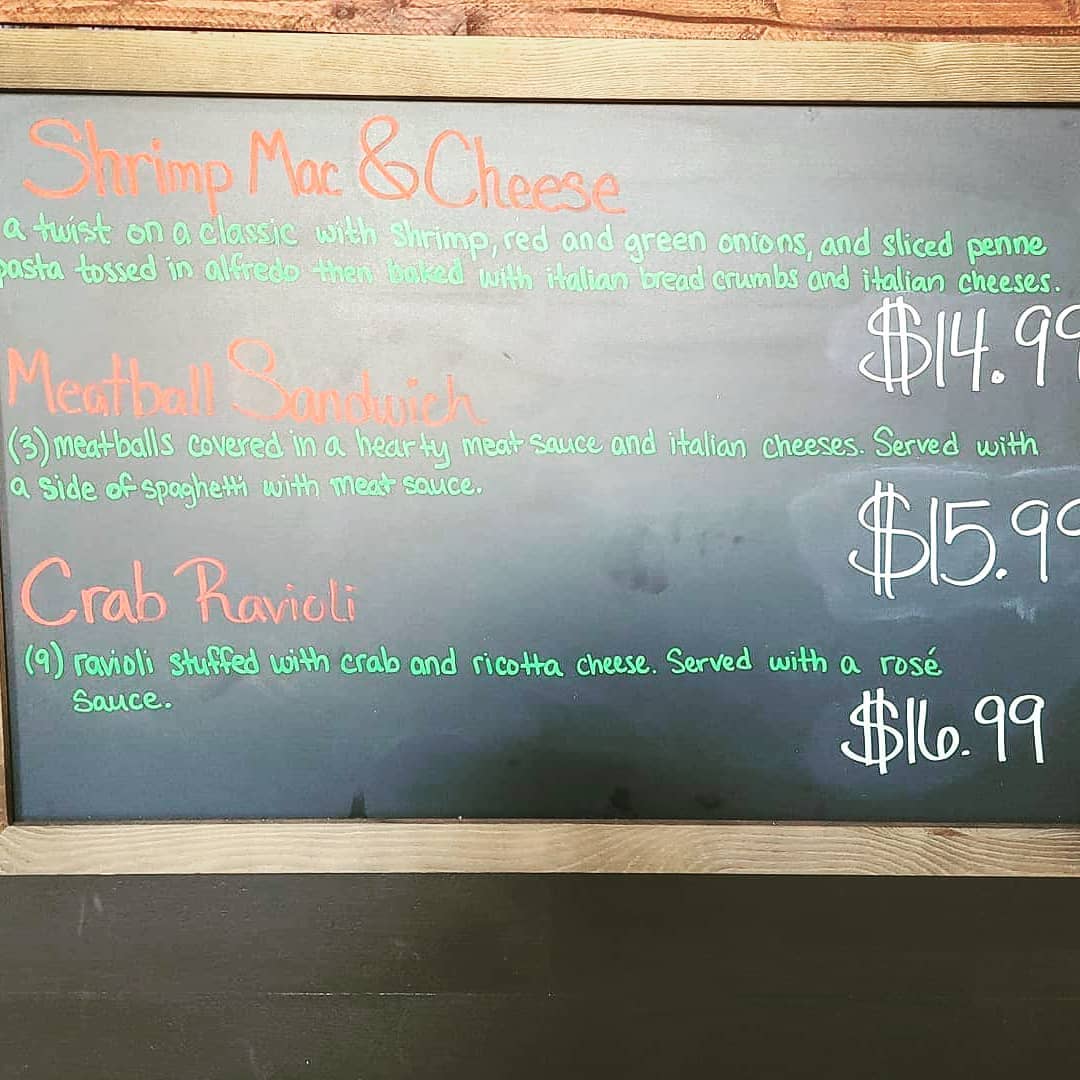 Shrimp Mac & Cheese
a twist on a classic with shrimp, red and green onions, and sliced penne
pasta tossed in alfredo then baked with italian bread crumbs and italian cheeses.
$14.99
Meatball Sandwich
(3) meatballs covered in a hearty meat sauce and italian cheeses. Served with
a side of spaghetti with meat sauce.
$15.99
Crab Ravioli
(9) ravioli stuffed with crab and ricotta cheese. Served with a rosé
sauce.
$16.99